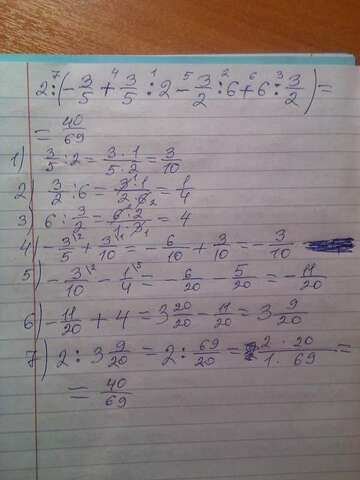 2:(-3/5+3/5:2-3/2:6+6:3/2)=
7 4 1 5 2 6 3
=40/69
1) 3/5:2=3·1/5·2=3/10
2) 3/2:6=3·1/2·6=1/4
3) 6:3/2=6·2/1·3=4
4) -3/5+3/10=-6/10+3/10=-3/10
5) -3/10-1/4=-6/20-5/20=-11/20
6) -11/20+4=3 20/20-11/20=3 9/20
7) 2:3 9/20=2:69/20=2·20/1·69=
=40/69